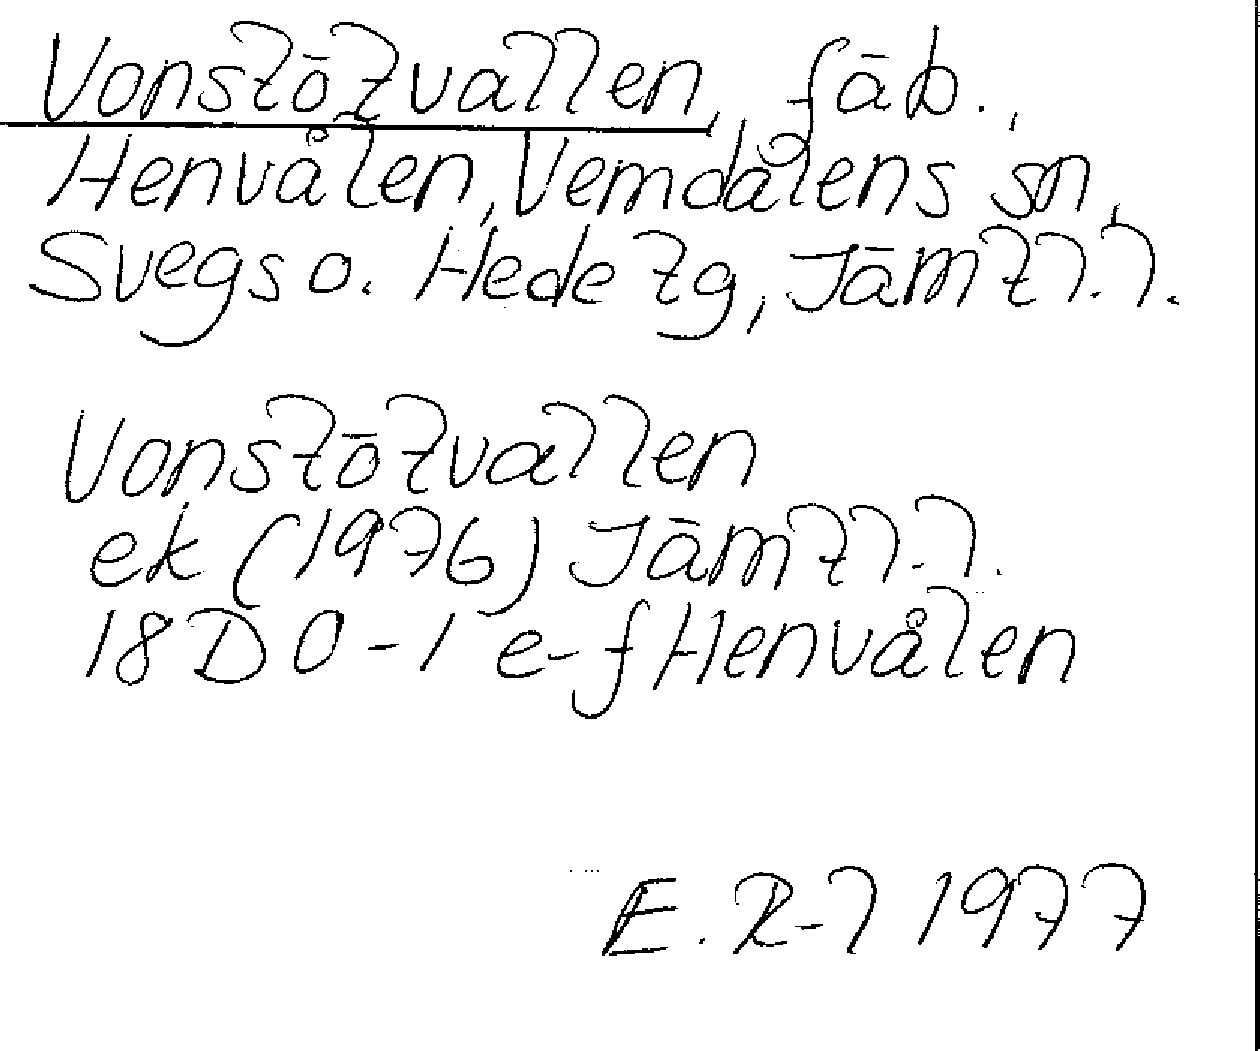 Vonstötvallen, fäb.,
Henvålen, Vemdalens sn,
Svegs o. Hede tg, Jämtl.l.
Vonstötvallen
ek (1976) Jämtl.l.
18D 0-1 e-f Henvålen
E. R-l 1977